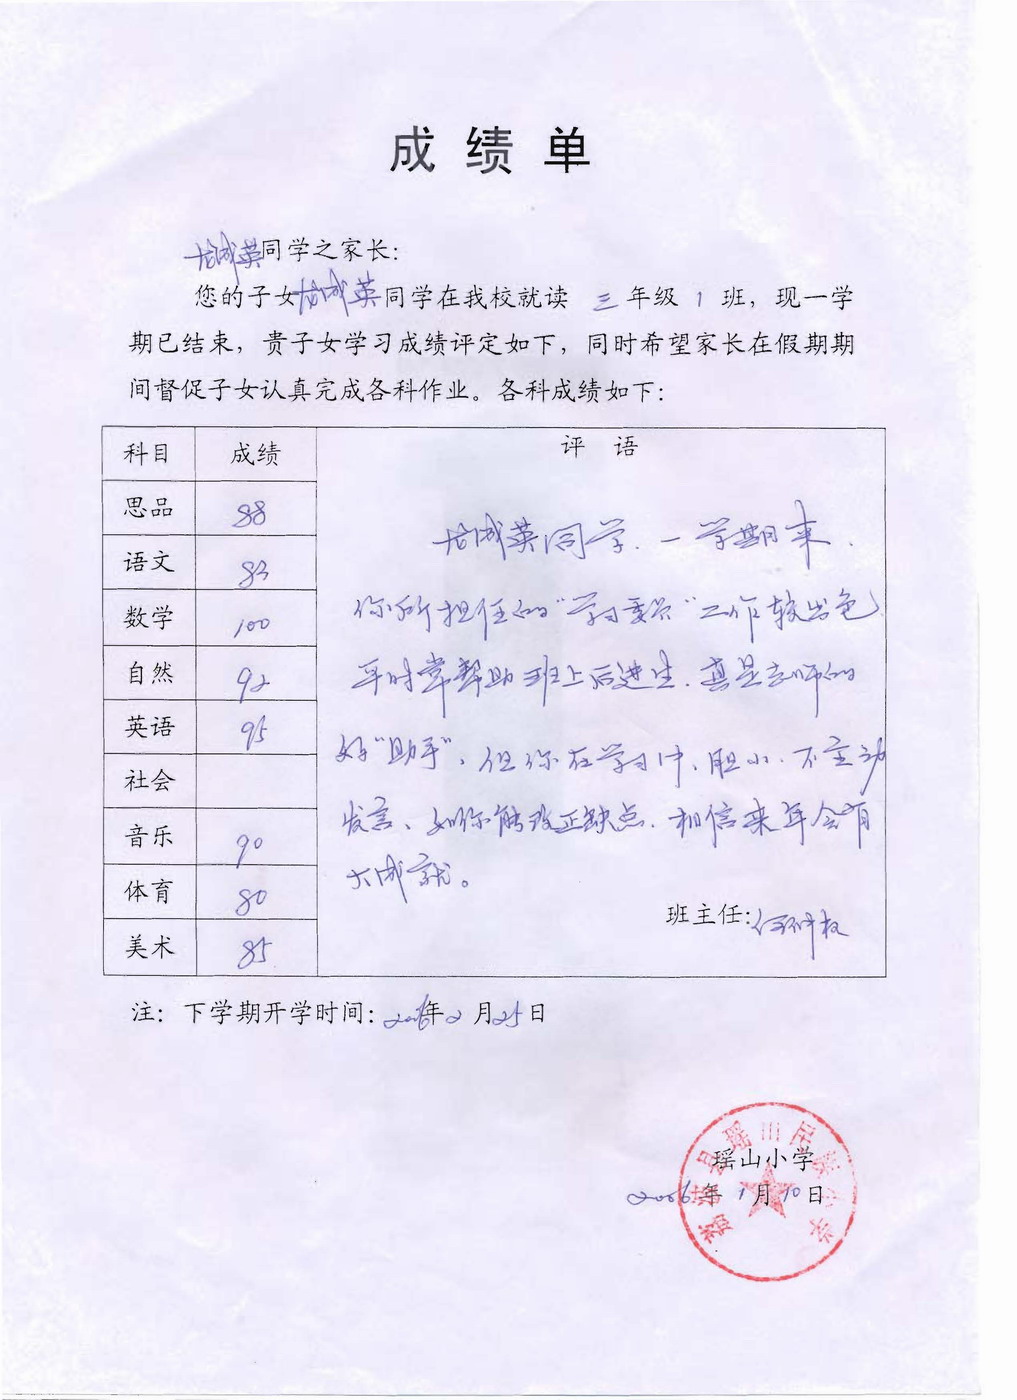 成绩单
龙成英同学之家长：
您的子女龙成英同学在我校就读 三 年级 1 班，现一学
期已结束，贵子女学习成绩评定如下，同时希望家长在假期期
间督促子女认真完成各科作业。各科成绩如下：
科目 成绩 评 语
思品 88
语文 83
数学 100
自然 92
英语 95
社会
音乐 90
体育 80
美术 85
龙成英同学，一学期来，
你所担任的“学习委员”工作较出色
平时常帮助班上后进生，真是老师的
好“助手”，但你在学习中，胆小，不主动
发言、如你能改正缺点，相信来年会有
大成就。
班主任：
注：下学期开学时间：2006年2月25日
瑶山小学
2006年1月10日
荔波县瑶山民族小学